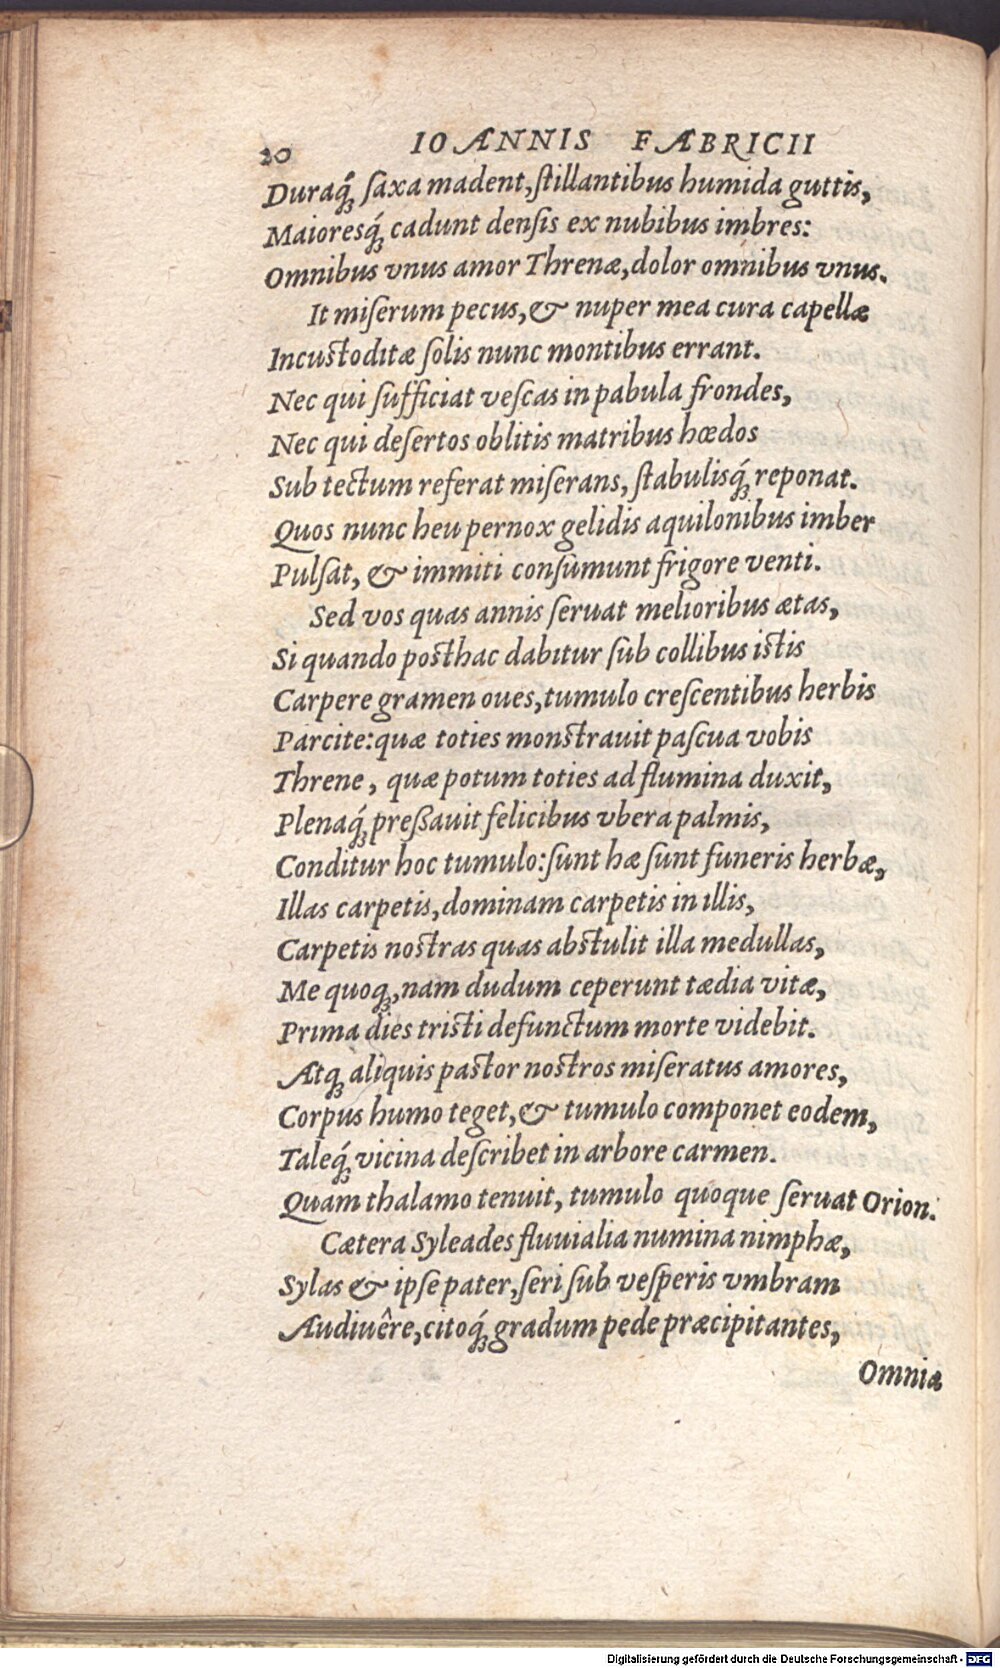 20 IOANNIS FABRICII
Duraq́; ſaxa madent, ſtillantibus humida guttis,
Maioresq́; cadunt denſis ex nubibus imbres:
Omnibus vnus amor Threnæ, dolor omnibus vnus.
It miſerum pecus, & nuper mea cura capellæ
Incuſtoditæ ſolis nunc montibus errant.
Nec qui ſufficiat veſcas in pabula frondes,
Nec qui deſertos oblitis matribus hœdos
Sub tectum referat miſerans, ſtabulisq́; reponat.
Quos nunc heu pernox gelidis aquilonibus imber
Pulſat, & immiti conſumunt frigore venti.
Sed vos quas annis ſeruat melioribus ætas,
Si quando poſthac dabitur ſub collibus iſtis
Carpere gramen oues, tumulo creſcentibus herbis
Parcite: quæ toties monſtrauit paſcua vobis
Threne, quæ potum toties ad flumina duxit,
Plenaq́; preßauit felicibus vbera palmis,
Conditur hoc tumulo: ſunt hæ ſunt funeris herbæ,
Illas carpetis, dominam carpetis in illis,
Carpetis noſtras quas abſtulit illa medullas,
Me quoq;, nam dudum ceperunt tædia vitæ,
Prima dies triſti defunctum morte videbit.
Atq; aliquis paſtor noſtros miſeratus amores,
Corpus humo teget, & tumulo componet eodem,
Taleq́; vicina deſcribet in arbore carmen.
Quam thalamo tenuit, tumulo quoque ſeruat Orion.
Cætera Syleades fluuialia numina nimphæ,
Sylas & ipſe pater, ſeri ſub veſperis vmbram
Audiuêre, citoq́; gradum pede præcipitantes,
Omnia
Digitalisierung gefördert durch die Deutsche Forschungsgemeinschaft - DFG